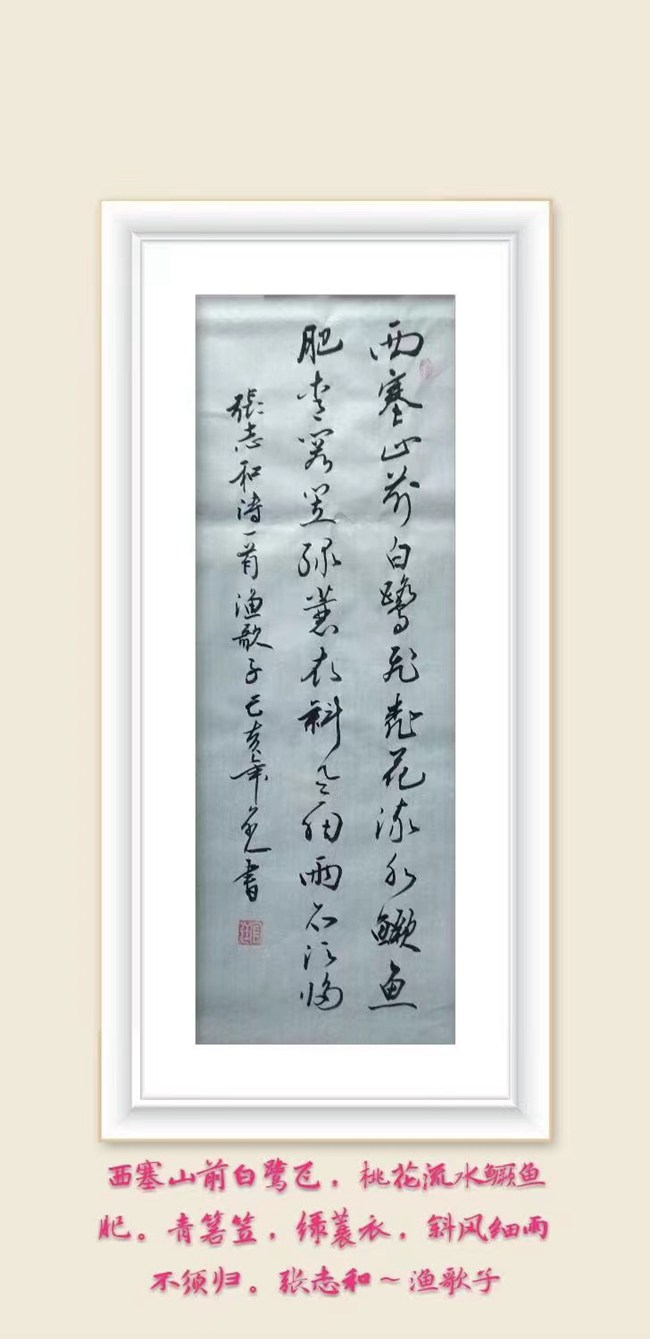 西塞山前白鹭飞桃花流水鳜鱼
肥青箬笠绿蓑衣斜风细雨不须归
張志和诗一首渔歌子己亥年
書
西塞山前白鹭飞，桃花流水鳜鱼
肥。青箬笠，绿蓑衣，斜风细雨
不须归。张志和～渔歌子